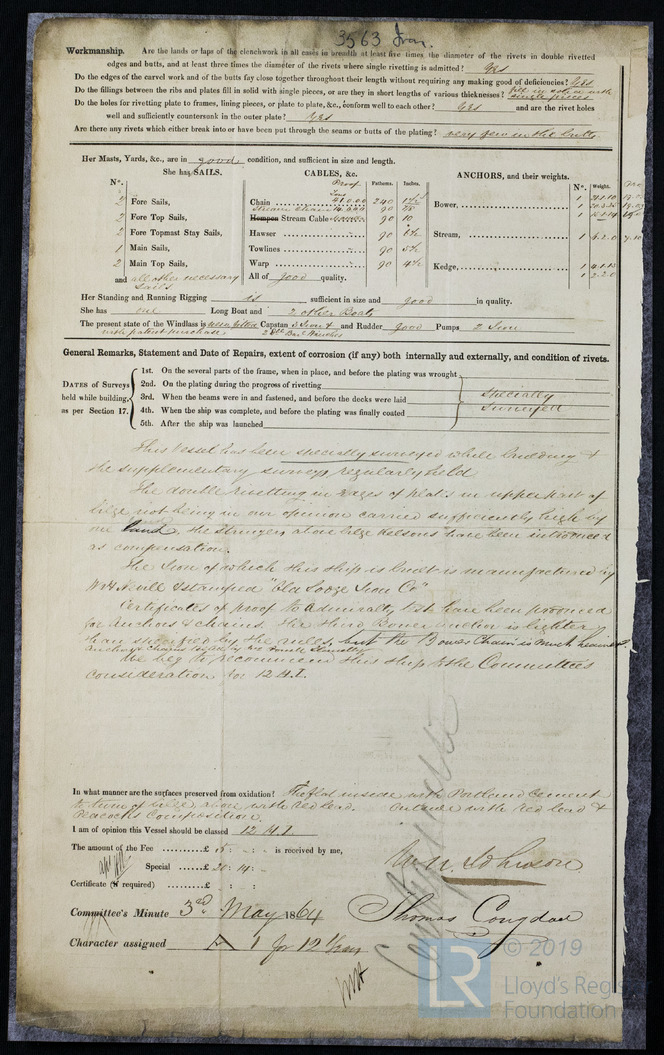 3563 Iron.
Workmanship. Are the lands or laps of the clenchwork in all cases in breadth at least five times the diameter of the rivets in double rivetted
edges and butts, and at least three times the diameter of the rivets where single rivetting is admitted? Yes
Do the edges of the carvel work and of the butts fay close together throughout their length without requiring any making good of deficiencies? Yes
Do the fillings between the ribs and plates fill in solid with single pieces, or are they in short lengths of various thicknesses? fill in solid with single pieces
Do the holes for rivetting plate to frames, lining pieces, or plate to plate, &c., conform well to each other? Yes and are the rivet holes
well and sufficiently countersunk in the outer plate? Yes
Are there any rivets which either break into or have been put through the seams or butts of the plating? very few in the butts
Her Masts, Yards, &c., are in good condition, and sufficient in size and length.
She has SAILS. CABLES, &c. ANCHORS, and their weights.
N°. Proof Tons Fathoms. Inches. N°. Weight.
2 Fore Sails, Chain 240
2 Fore Top Sails, Hempen Stream Cable 90 10
2 Fore Topmast Stay Sails, Hawser 90
1 Main Sails, Towlines 90 5½
2 Main Top Sails, Warp 90 4½
Bower,
Stream,
Kedge,
and all other necessary sails All of good quality.
Her Standing and Running Rigging is sufficient in size and good in quality.
She has one Long Boat and 2 other Boats
The present state of the Windlass is Capstan and Rudder good Pumps 2 Iron
with patent purchase
General Remarks, Statement and Date of Repairs, extent of corrosion (if any) both internally and externally, and condition of rivets.
DATES of Surveys held while building, as per Section 17.
1st. On the several parts of the frame, when in place, and before the plating was wrought
2nd. On the plating during the progress of rivetting
3rd. When the beams were in and fastened, and before the decks were laid
4th. When the ship was complete, and before the plating was finally coated
5th. After the ship was launched
specially
surveyed
This Vessel has been specially surveyed while building &
the supplementary surveys regularly held
The double rivetting in edges of plates in upper part of
bilge not being in our opinion carried sufficiently high by
one land, the stringers above bilge kelsons have been introduced
as compensation.
The Iron of which this ship is built is manufactured by
& stamped "Old Lodge Iron Co"
Certificates of proof to Admiralty test have been produced
for anchors & chains. The third Bower anchor is lighter
than specified by the rules, but the Bower Chain is much heavier.
We beg to recommend this ship to the Committee's
consideration for 12 A.1.
In what manner are the surfaces preserved from oxidation? The flat inside with Portland Cement
to turn of bilge above with red lead. Outside with red lead &
Peacock's Composition.
I am of opinion this Vessel should be classed 12 A.1
The amount of the Fee £ 5 : - : - is received by me,
Special £ 20 : 14 : -
Certificate (if required) £ : :
Committee's Minute 3rd May 1864
Thomas Congdon
Character assigned A 1 for 12 Years
LR
© 2019
Lloyd's Regis
Foundation